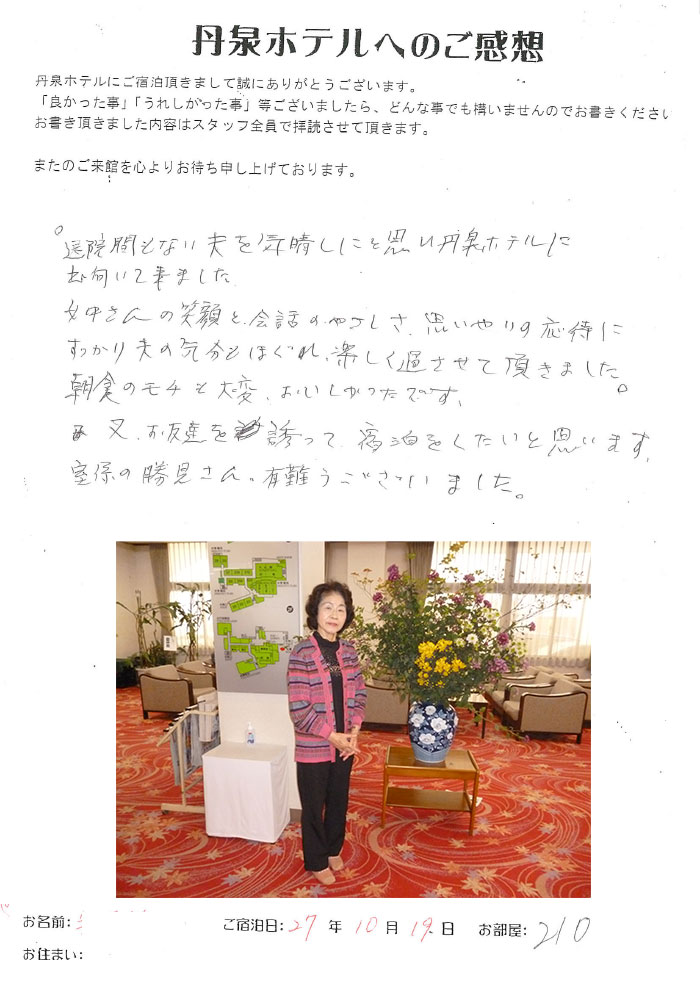 丹泉ホテルへのご感想
丹泉ホテルにご宿泊頂きまして誠にありがとうございます。
「良かった事」「うれしかった事」等ございましたら、どんな事でも構いませんのでお書きください
お書き頂きました内容はスタッフ全員で拝読させて頂きます。
またのご来館を心よりお待ち申し上げております。
退院間もない夫を気晴しにと思い丹泉ホテルに
出向いて来ました
女中さんの笑顔と、会話のやさしさ、思いやりの応待に
すっかり夫の気分もほぐれ、楽しく過させて頂きました。
朝食のモチも大変、おいしかったです。
又、お友達を誘って、宿泊をしたいと思います。
室係の勝見さん。有難うございました。
お名前:
ご宿泊日: 27 年 10 月 19 日 お部屋: 210
お住まい: